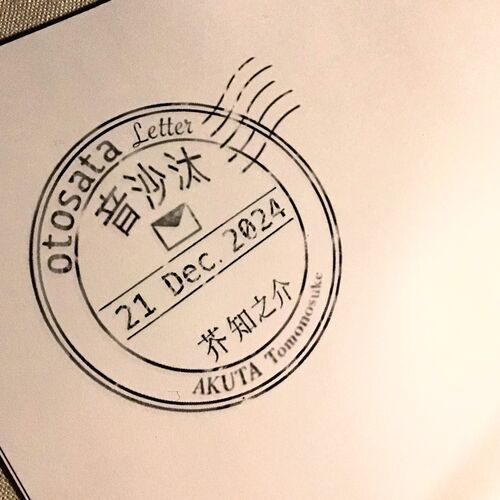 otosata Letter
音沙汰
21 Dec. 2024
芥 知之介
AKUTA Tomonosuke